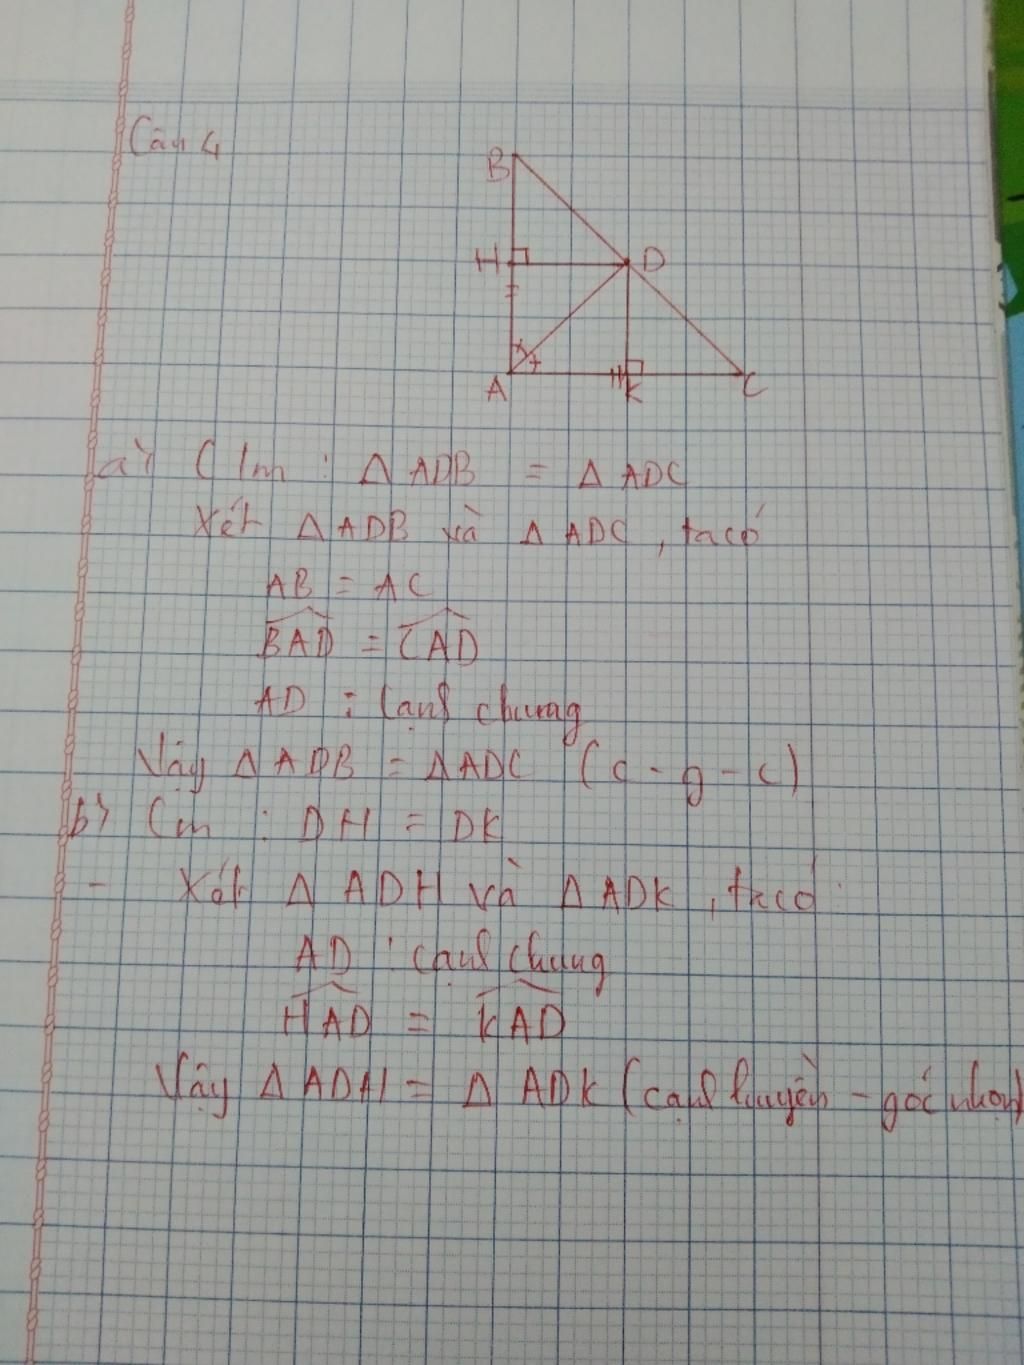 Câu 4
B
H
D
A
K
C
a) C/m : Δ ADB = Δ ADC
Xét Δ ADB và Δ ADC, ta có
AB = AC
BAD = CAD
AD : Cạnh chung
Vậy Δ ADB = Δ ADC (c - g - c)
b) Cm : DH = DK
- Xét Δ ADH và Δ ADK, ta có
AD : cạnh chung
HAD = KAD
Vậy Δ ADH = Δ ADK (cạnh huyền - góc nhọn)